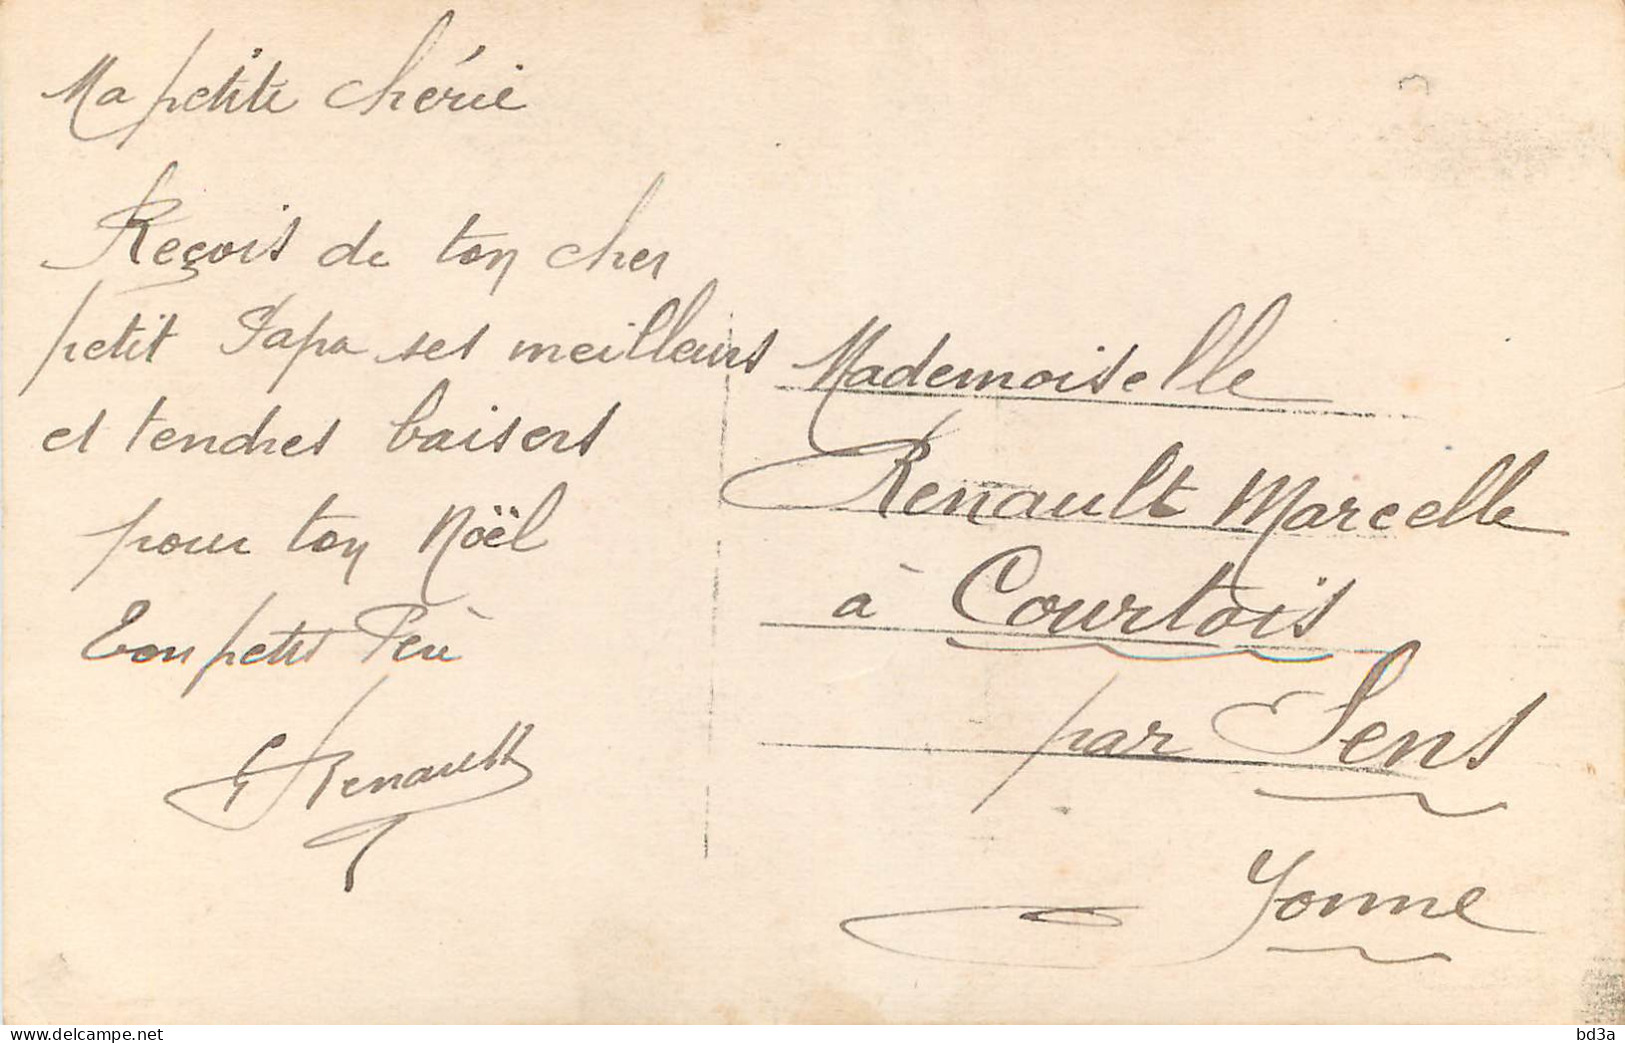 Ma petite chérie
Reçois de ton cher
petit Papa ses meilleurs
et tendres baisers
pour ton Noël
Ton petit Père
Renault
Mademoiselle
Renault Marcelle
à Courtois
par Sens
Yonne
www.delcampe.net
bd3a